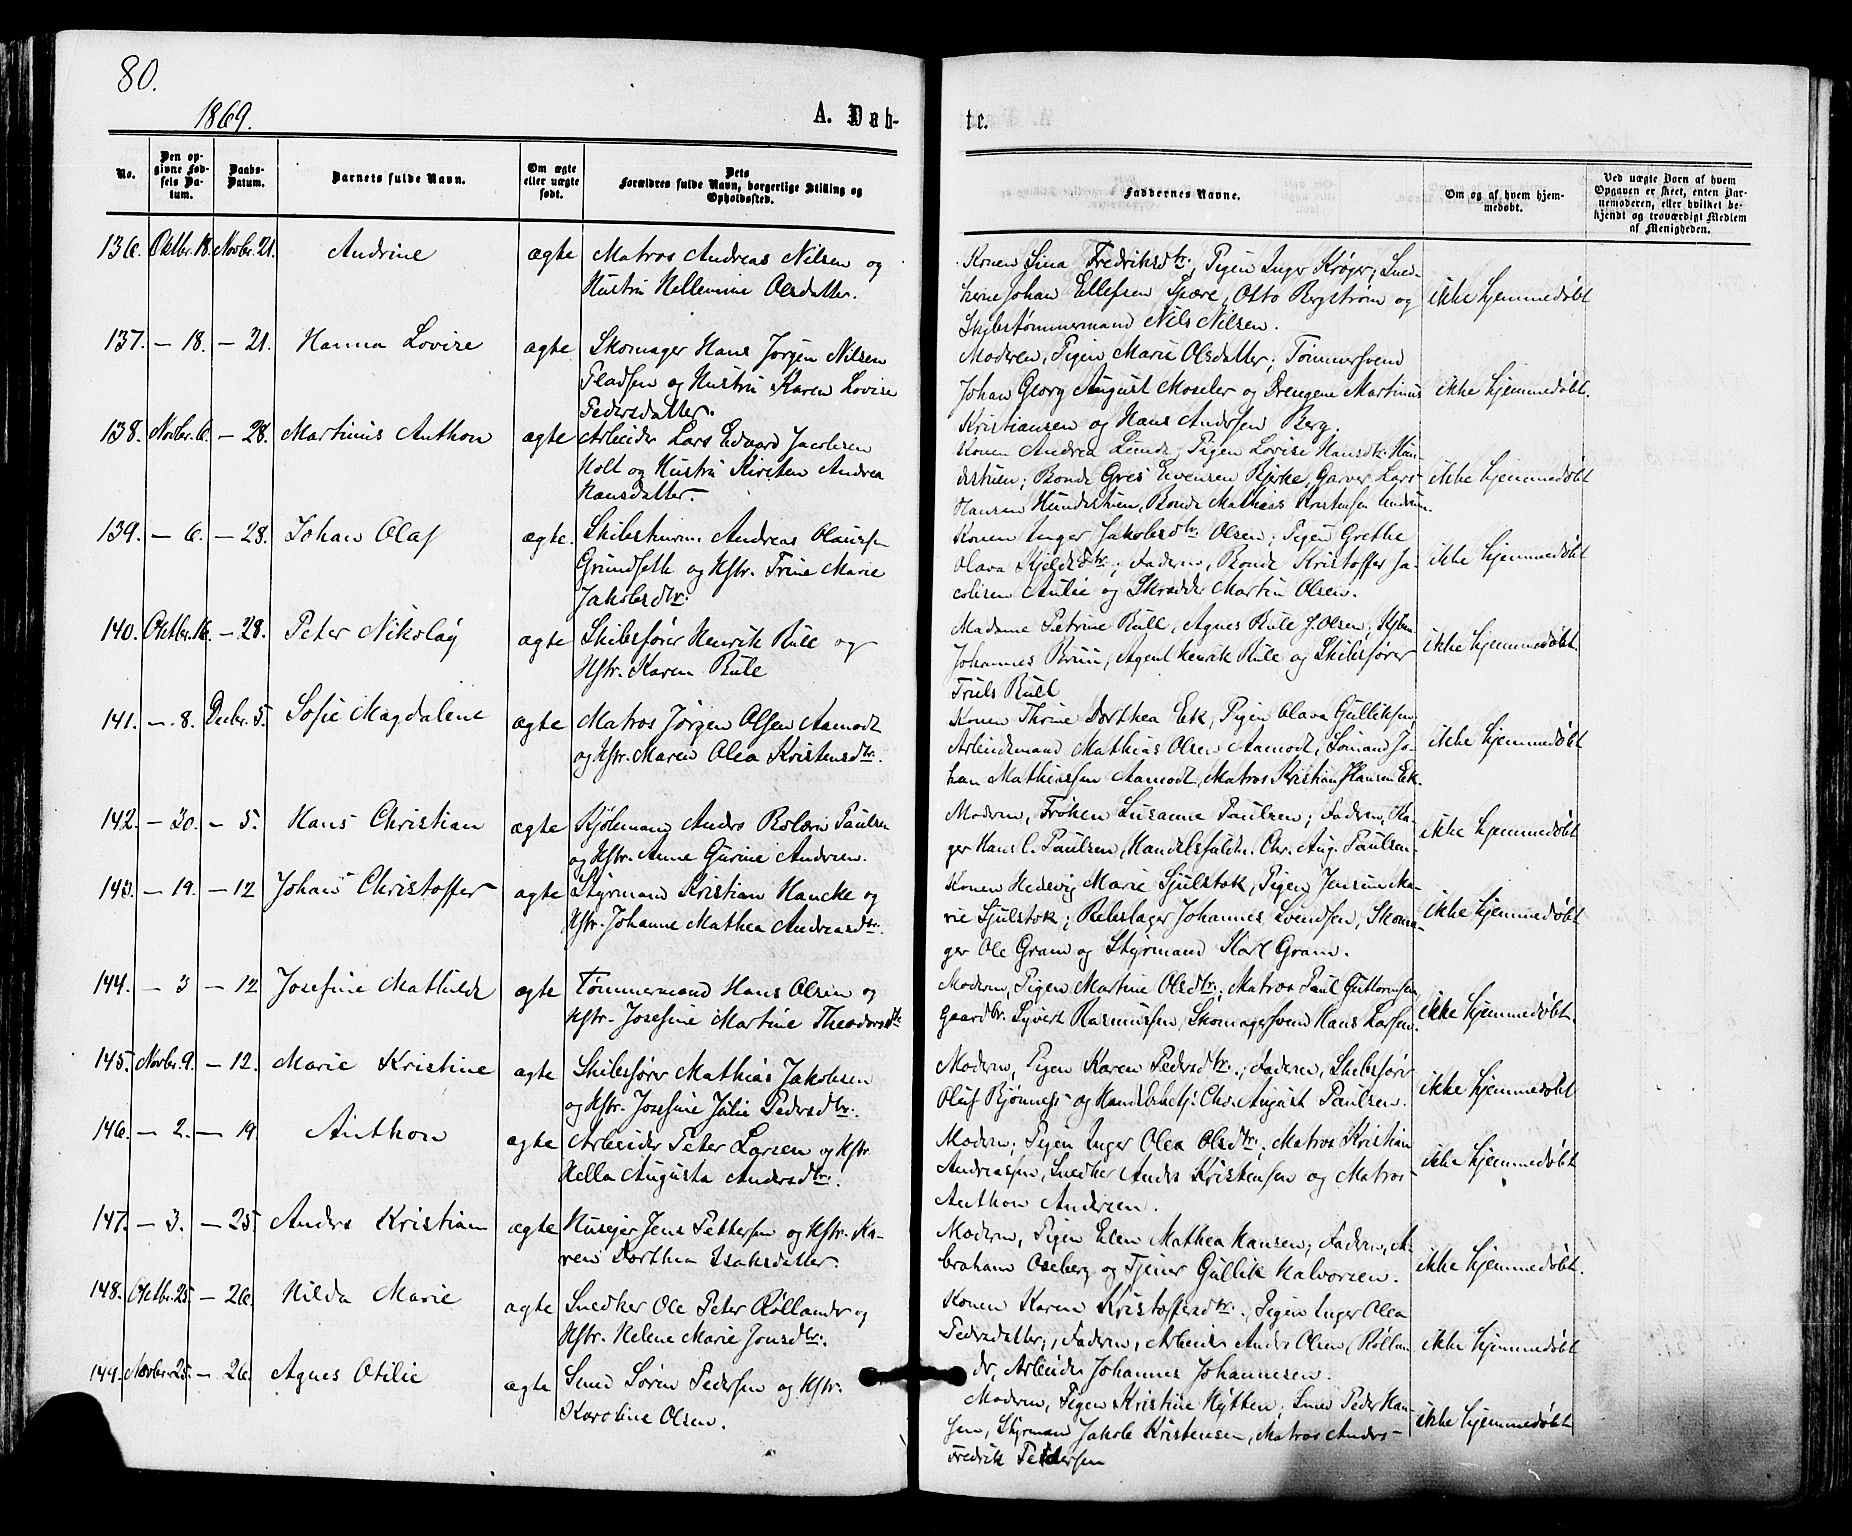 80.
1869.
A. Døb-
te.
No.
Den op-
givne Fød-
sels Da-
tum.
Daabs-
Datum.
Barnets fulde Navn.
Om ægte
eller uægte
født.
Dets
Forældres fulde Navn, borgerlige Stilling og
Opholdssted.
Faddernes Navne.
Om og af hvem hjem-
medøbt.
Ved uægte Barn af hvem
Opgaven er skeet, enten Bar-
nemoderen, eller hvilket be-
kjendt og troværdigt Medlem
af Menigheden.
136. Oktbr. 18. Novbr. 21. Andrine ægte Matros Andreas Nilsen og
Hustru Hellemine Olsdatter.
Konen Lina Fredriksdtr; Pigen Inger Krøger; Sned-
kerne Johan Ellefsen Spære, Otto Bergstrøm og
Skibstømmermand Nils Nilsen.
ikke hjemmedøbt
137. – 18. – 21. Hanna Lovise ægte Skomager Hans Jørgen Nilsen
Fladsen og Hustru Karen Lovise
Pedersdatter.
Moderen, Pigen Marie Olsdatter; Tømmersvend
Johan Georg August Moseler og Drengene Martinus
Kristiansen og Hans Andersen Berg.
ikke hjemmedøbt.
138. Novbr. 6. – 28. Martinus Anthon ægte Arbeider Lars Edvard Jacobsen
Holt og Hustru Kirsten Andrea
Hansdatter.
Konen Andrea Lunde, Pigen Lovise Hansdtr. Hun-
destuen; Bonde Gres Evensen Bjerke, Garver Lars
Hansen Hundestuen, Bonde Mathias Kristensen
ikke hjemmedøbt
139. – 6. – 28. Johan Olaf ægte. Andreas Olaussen
Grundseth og Hstr. Trine Marie
Jakobsdtr:
Konen Inger Jakobsdtr. Olsen; Pigen Grethe
Olava Kjeldsdtr; Faderen, Bonde Kristoffer Ja-
cobsen Aulie og Skrædder Martin Olsen.
ikke hjemmedøbt
140. Oktbr. 16. – 28. Peter Nikolay ægte Skibsfører Henrik Bull og
Hstr. Karen Bull
Madame Petrine Bull, Agnes Bull f. Olsen;
Johannes Bruu, Agent Henrik Bull og Skibsfører
Truls Bull
ikke hjemmedøbt.
141. – 8. Decbr. 5. Sofie Magdalene ægte Matros Jørgen Olsen Aamodt
og Hstr. Maren Olea Kristensdtr.
Konen Thrine Dorthea Eek, Pigen Olava Gulliksen,
Arbeidsmand Mathias Olsen Aamodt, Sømand Jo-
han Mathiassen Aamodt, Matros Kristian Hansen Eek.
ikke hjemmedøbt
142. – 30. – 5. Hans Christian ægte Kjøbmand Anders Paulsen
og Hstr. Anne Gurine Andersen.
Moderen, Frøken Susanne Paulsen; Faderen, Ka-
ger Hans C. Paulsen, Handelsfuldm. Chr. Aug. Paulsen
ikke hjemmedøbt
143. – 19. – 12 Johan Christoffer ægte Styrmand Kristian Hancke og
Hstr. Johanne Mathea Andreasdtr.
Konen Hedevig Marie Sjulstok, Pigen Jensine Ma-
rie Sjulstok; Rebslager Johannes Svendsen, Skoma-
ger Ole Gram og Styrmand Karl Gram.
ikke hjemmedøbt
144. – 3 – 12 Josefine Mathilde ægte Tømmermand Hans Olsen og
Hstr. Josefine Martine Theodorsdtr
Moderen, Pigen Martine Olsdtr, Matros Paul Guttormsen,
Gaardbr. Syvert Rasmussen, Skomagersvend Hans Larsen.
ikke hjemmedøbt.
145. Novbr. 9. – 12. Marie Kristine ægte Skibsfører Mathias Jakobsen
og Hstr. Josefine Julie Pedersdtr.
Moderen, Pigen Karen Pedersdtr.; Faderen, Skibsfører
Oluf Bjønness og Handelsbetj. Chr. August Paulsen.
ikke hjemmedøbt
146. – 2. – 19. Anthon ægte Arbeider Peter Larsen og Hstr.
Hella Augusta Andersdtr.
Moderen; Pigen Inger Olea Olsdtr.; Matros Kristian
Andreassen, Snedker Anders Kristensen og Matros
Anthon Andersen.
ikke hjemmedøbt
147. – 3. – 25 Anders Kristian ægte Huseier Jens Pettersen og Hstr. Ka-
ren Dorthea Isaksdatter.
Moderen, Pigen Elen Mathea Hansen; Faderen, A-
braham Oseberg og Tjener Gullik Halvorsen.
ikke hjemmedøbt.
148. Oktbr. 25. – 26. Hilda Marie ægte Snedker Ole Peter Røllandr og
Hstr. Helene Marie Jonsdtr.
Konen Karen Kristoffersdtr., Pigen Inger Olea
Pedersdatter; Faderen, Arbeider Anders Olsen Rollan-
dr, Arbeider Johannes Johannesen.
ikke hjemmedøbt
149. Novber 25. – 26. Agnes Otilie ægte Smed Søren Pedersen og Hstr:
Karoline Olsen.
Moderen, Pigen Kristine Hytten; Smed Peder Han-
sen, Styrmand Jakob Kristensen, Matros Anders
Fredrik Pedersen
ikke hjemmedøbt